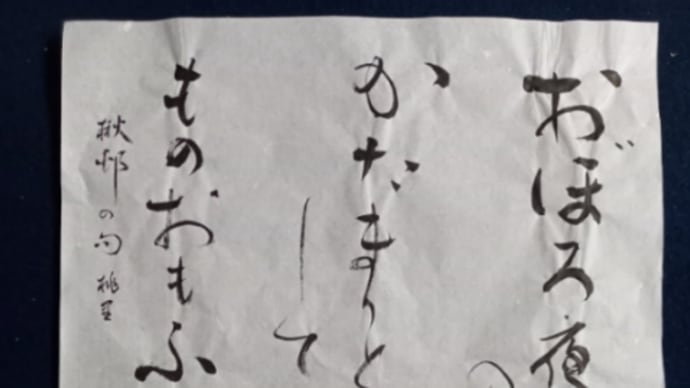 おぼろ夜
かたまりと
して
ものおもふ
楸邨の句 桃里